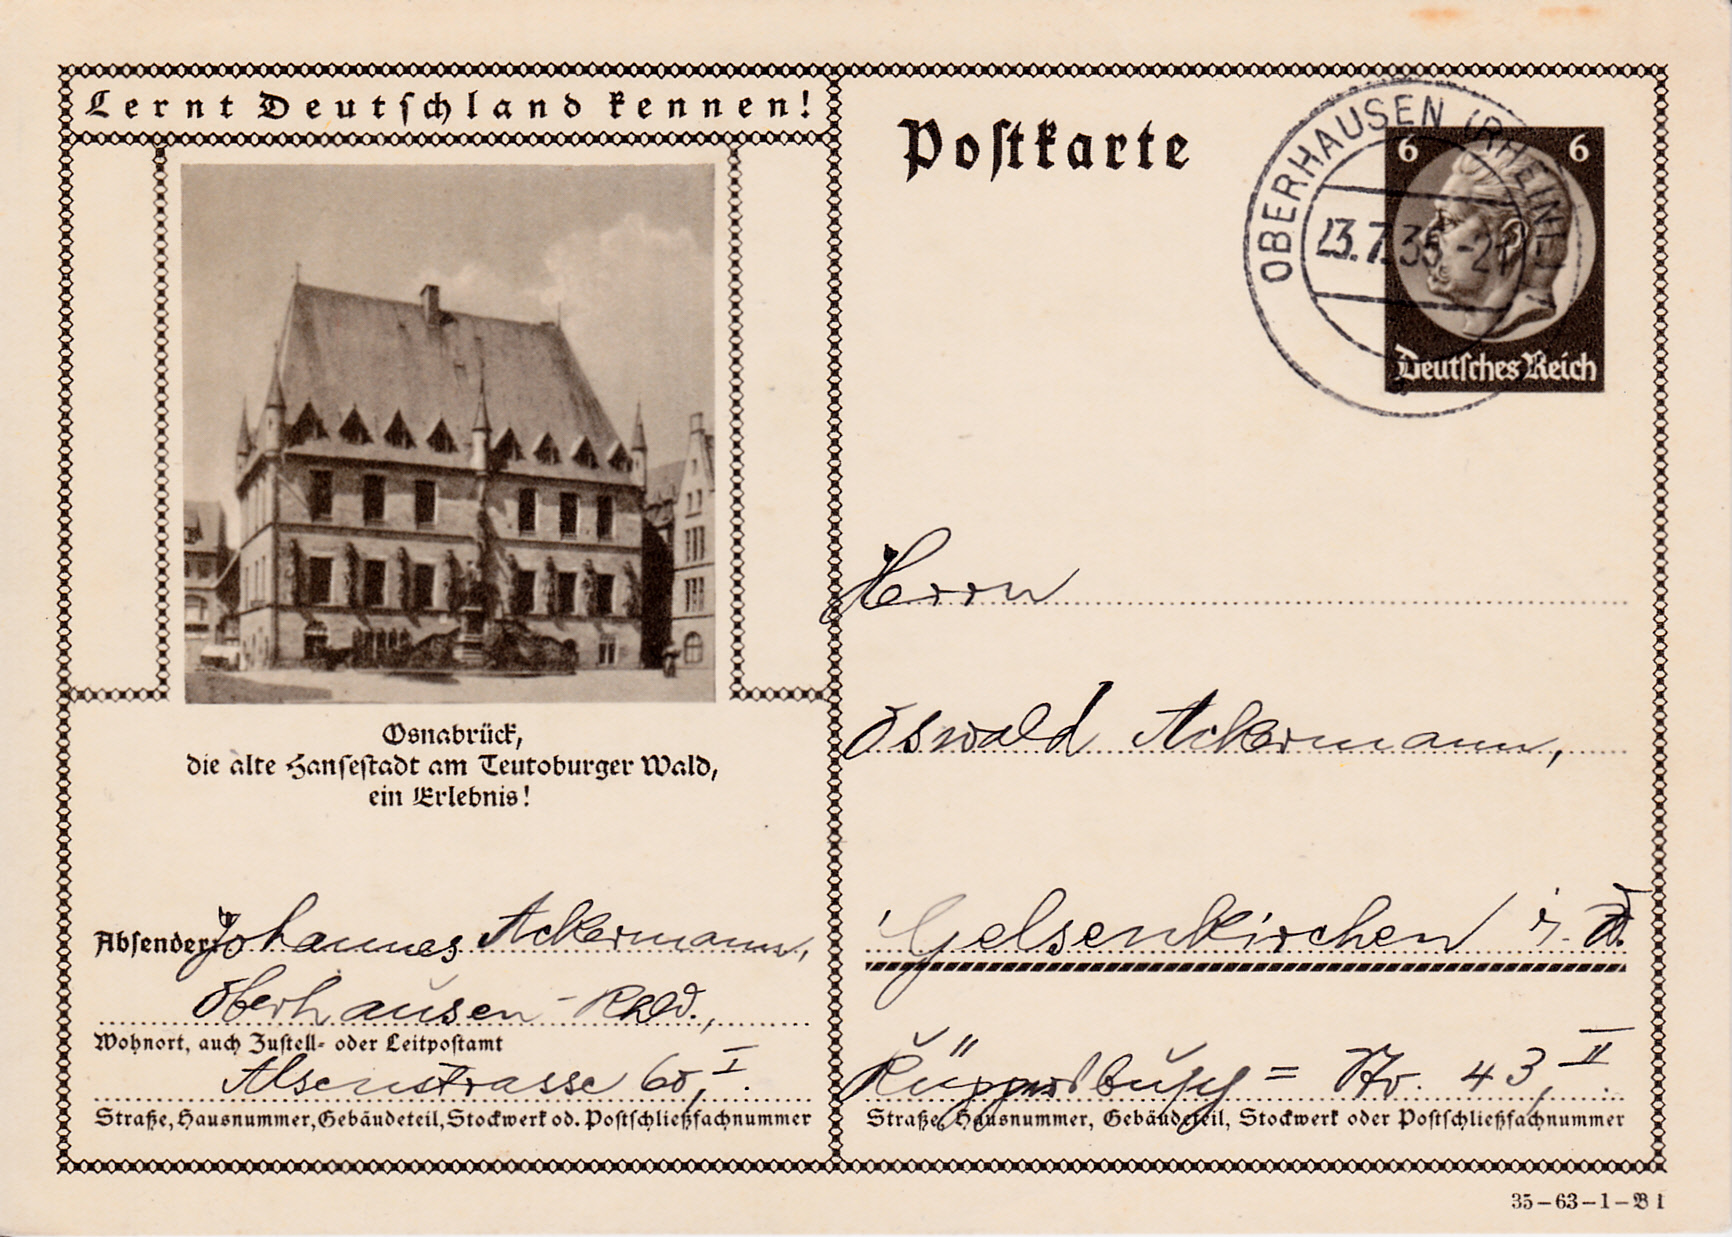 Lernt Deutschland kennen!
Postkarte
OBERHAUSEN (RHEINL)
23.7.35.-21
6 6
Deutsches Reich
Osnabrück,
die alte Hansestadt am Teutoburger Wald,
ein Erlebnis!
Herrn
Oswald Ackermann,
Gelsenkirchen i.
Absender: Johannes Ackermann,
Oberhausen - Rhld.,
Wohnort, auch Zustell- oder Leitpostamt
Alsenstrasse 60, I.
Straße, Hausnummer, Gebäudeteil, Stockwerk od. Postschließfachnummer
43, II.
Straße, Hausnummer, Gebäudeteil, Stockwerk oder Postschließfachnummer
35-63-1-B 1